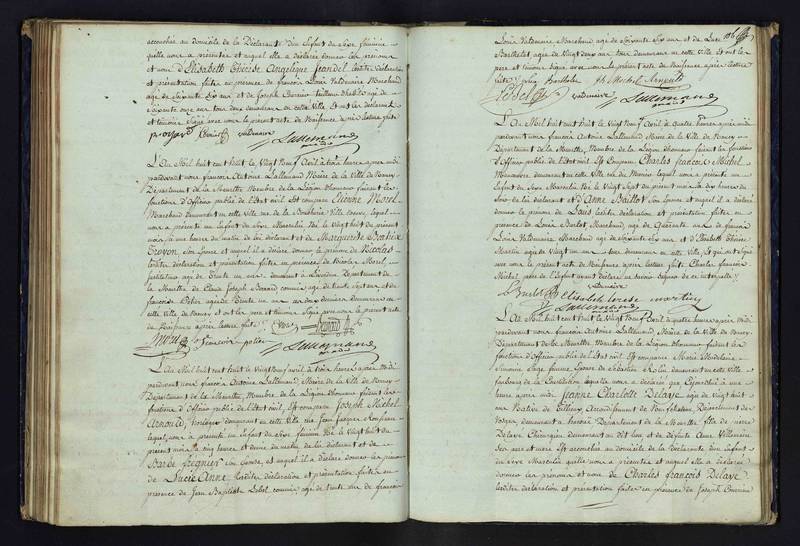 accouchée au domicile de la Déclarante d'un Enfant du Sexe féminin
qu'elle nous a présentée et auquel elle a déclarée donner les prénoms
et nom d'Elisabeth Thérèse Angélique Jeandel lesdites déclaration
et présentation faites en présence de françois Louis Valdenaire Marchand
agé de soixante six ans et de Joseph
et témoins signé avec nous le présent acte de Naissance après lecture faite
Valdenaire
Lallemand
L'an Mil huit cent huit le Vingt Neuf avril à trois heures après midi
pardevant nous françois Antoine Lallemand Maire de la Ville de Nancy
Département de la Meurthe, Membre de la Légion d'honneur faisant les
fonctions d'Officier public de l'état civil, Est comparu Etienne Morel
Marchand demeurant en cette Ville rue de la Boucherie Ville neuve, lequel
nous a présenté un Enfant du Sexe Masculin Né le Vingt huit du présent
mois à une heure du matin de lui déclarant et de Marguerite Barbe
Troyon son Epouse et auquel il a déclaré donner le prénom de Nicolas
lesdites déclaration et présentation faites en présence de Nicolas Morel
Instituteur agé de trente un ans demeurant à
de la Meurthe et de Claude Joseph Renard commis agé de trente sept ans et de
françoise Potier agée de trente un ans
cette Ville et ont les
de Naissance après lecture faite
françoise potier
Lallemand
L'an Mil huit cent huit le Vingt Neuf avril à trois heures après Midi
pardevant nous françois Antoine Lallemand, Maire de la Ville de Nancy
Département de la Meurthe, Membre de la Légion d'honneur faisant les
fonctions d'Officier public de l'état civil, Est comparu Joseph Michel
Arnould, demeurant en cette Ville rue Jean Jacques Rousseau
lequel nous a présenté un Enfant du Sexe féminin Né le Vingt huit du
présent mois à cinq heures et demie du matin de lui déclarant et de
Barbe fregnier son Epouse, et auquel il a déclaré donner les prénoms
de Lucie Anne, lesdites déclaration et présentation faites en
présence de Jean Baptiste Lebel commis agé de trente six ans de françois
106
Louis Valdenaire Marchand agé de Soixante Six ans et de Luce
Barthelot agée de Vingt deux ans tous demeurans en cette Ville Et ont les
père et témoins signé avec nous le présent acte de Naissance après lecture
faite
Valdenaire
Lallemand
L'an Mil huit cent huit le Vingt Neuf avril à quatre heures après midi
pardevant nous françois Antoine Lallemand Maire de la Ville de Nancy
Département de la Meurthe, Membre de la Légion d'honneur faisant les fonctions
d'Officier public de l'état civil Est Comparu Charles françois Michel
Manoeuvre demeurant en cette Ville rue lequel nous a présenté un
Enfant du Sexe Masculin Né le Vingt Sept du présent mois à dix heures du
Soir de lui déclarant et d'Anne Baillot Son Epouse et auquel il a déclaré
donner le prénom de Louis lesdites déclaration et présentation faites en
présence de Louis Barlet Marchand, agé de Quarante ans de françois
Louis Valdenaire Marchand agé de soixante six ans et d'Elisabeth Thérèse
Martin agée de Vingt un ans tous demeurans en cette Ville
avec nous le présent acte de Naissance après lecture faite Charles françois
Michel père de l'Enfant ayant déclaré ne savoir signer de ce interpellé
Valdenaire
Elisabeth terese martin
Lallemand
L'an Mil huit cent huit le Vingt Neuf avril à quatre heures après Midi
pardevant nous françois Antoine Lallemand, Maire de la Ville de Nancy
Département de la Meurthe, Membre de la Légion d'honneur faisant les
fonctions d'Officier public de l'état civil, Est comparue Marie Madelaine
Simonin Sage femme Epouse de Sébastien demeurant en cette Ville
faubourg de la Constitution laquelle nous a déclaré que Cejourd'hui à une
heure après midi Jeanne Charlotte Delaye agée de vingt huit
ans Native de Arrondissement de Neufchateau, Département des
Vosges, demeurant à Département de la Meurthe fille de pierre
Delaye Chirurgien demeurant au dit lieu et de défunte Anne
Ses père et mère Est accouchée au domicile de la déclarante d'un Enfant
du Sexe Masculin qu'elle nous a présenté et auquel elle a déclaré
donner les prénoms et nom de Charles françois Delaye
lesdites déclaration et présentation faites en présence de Joseph